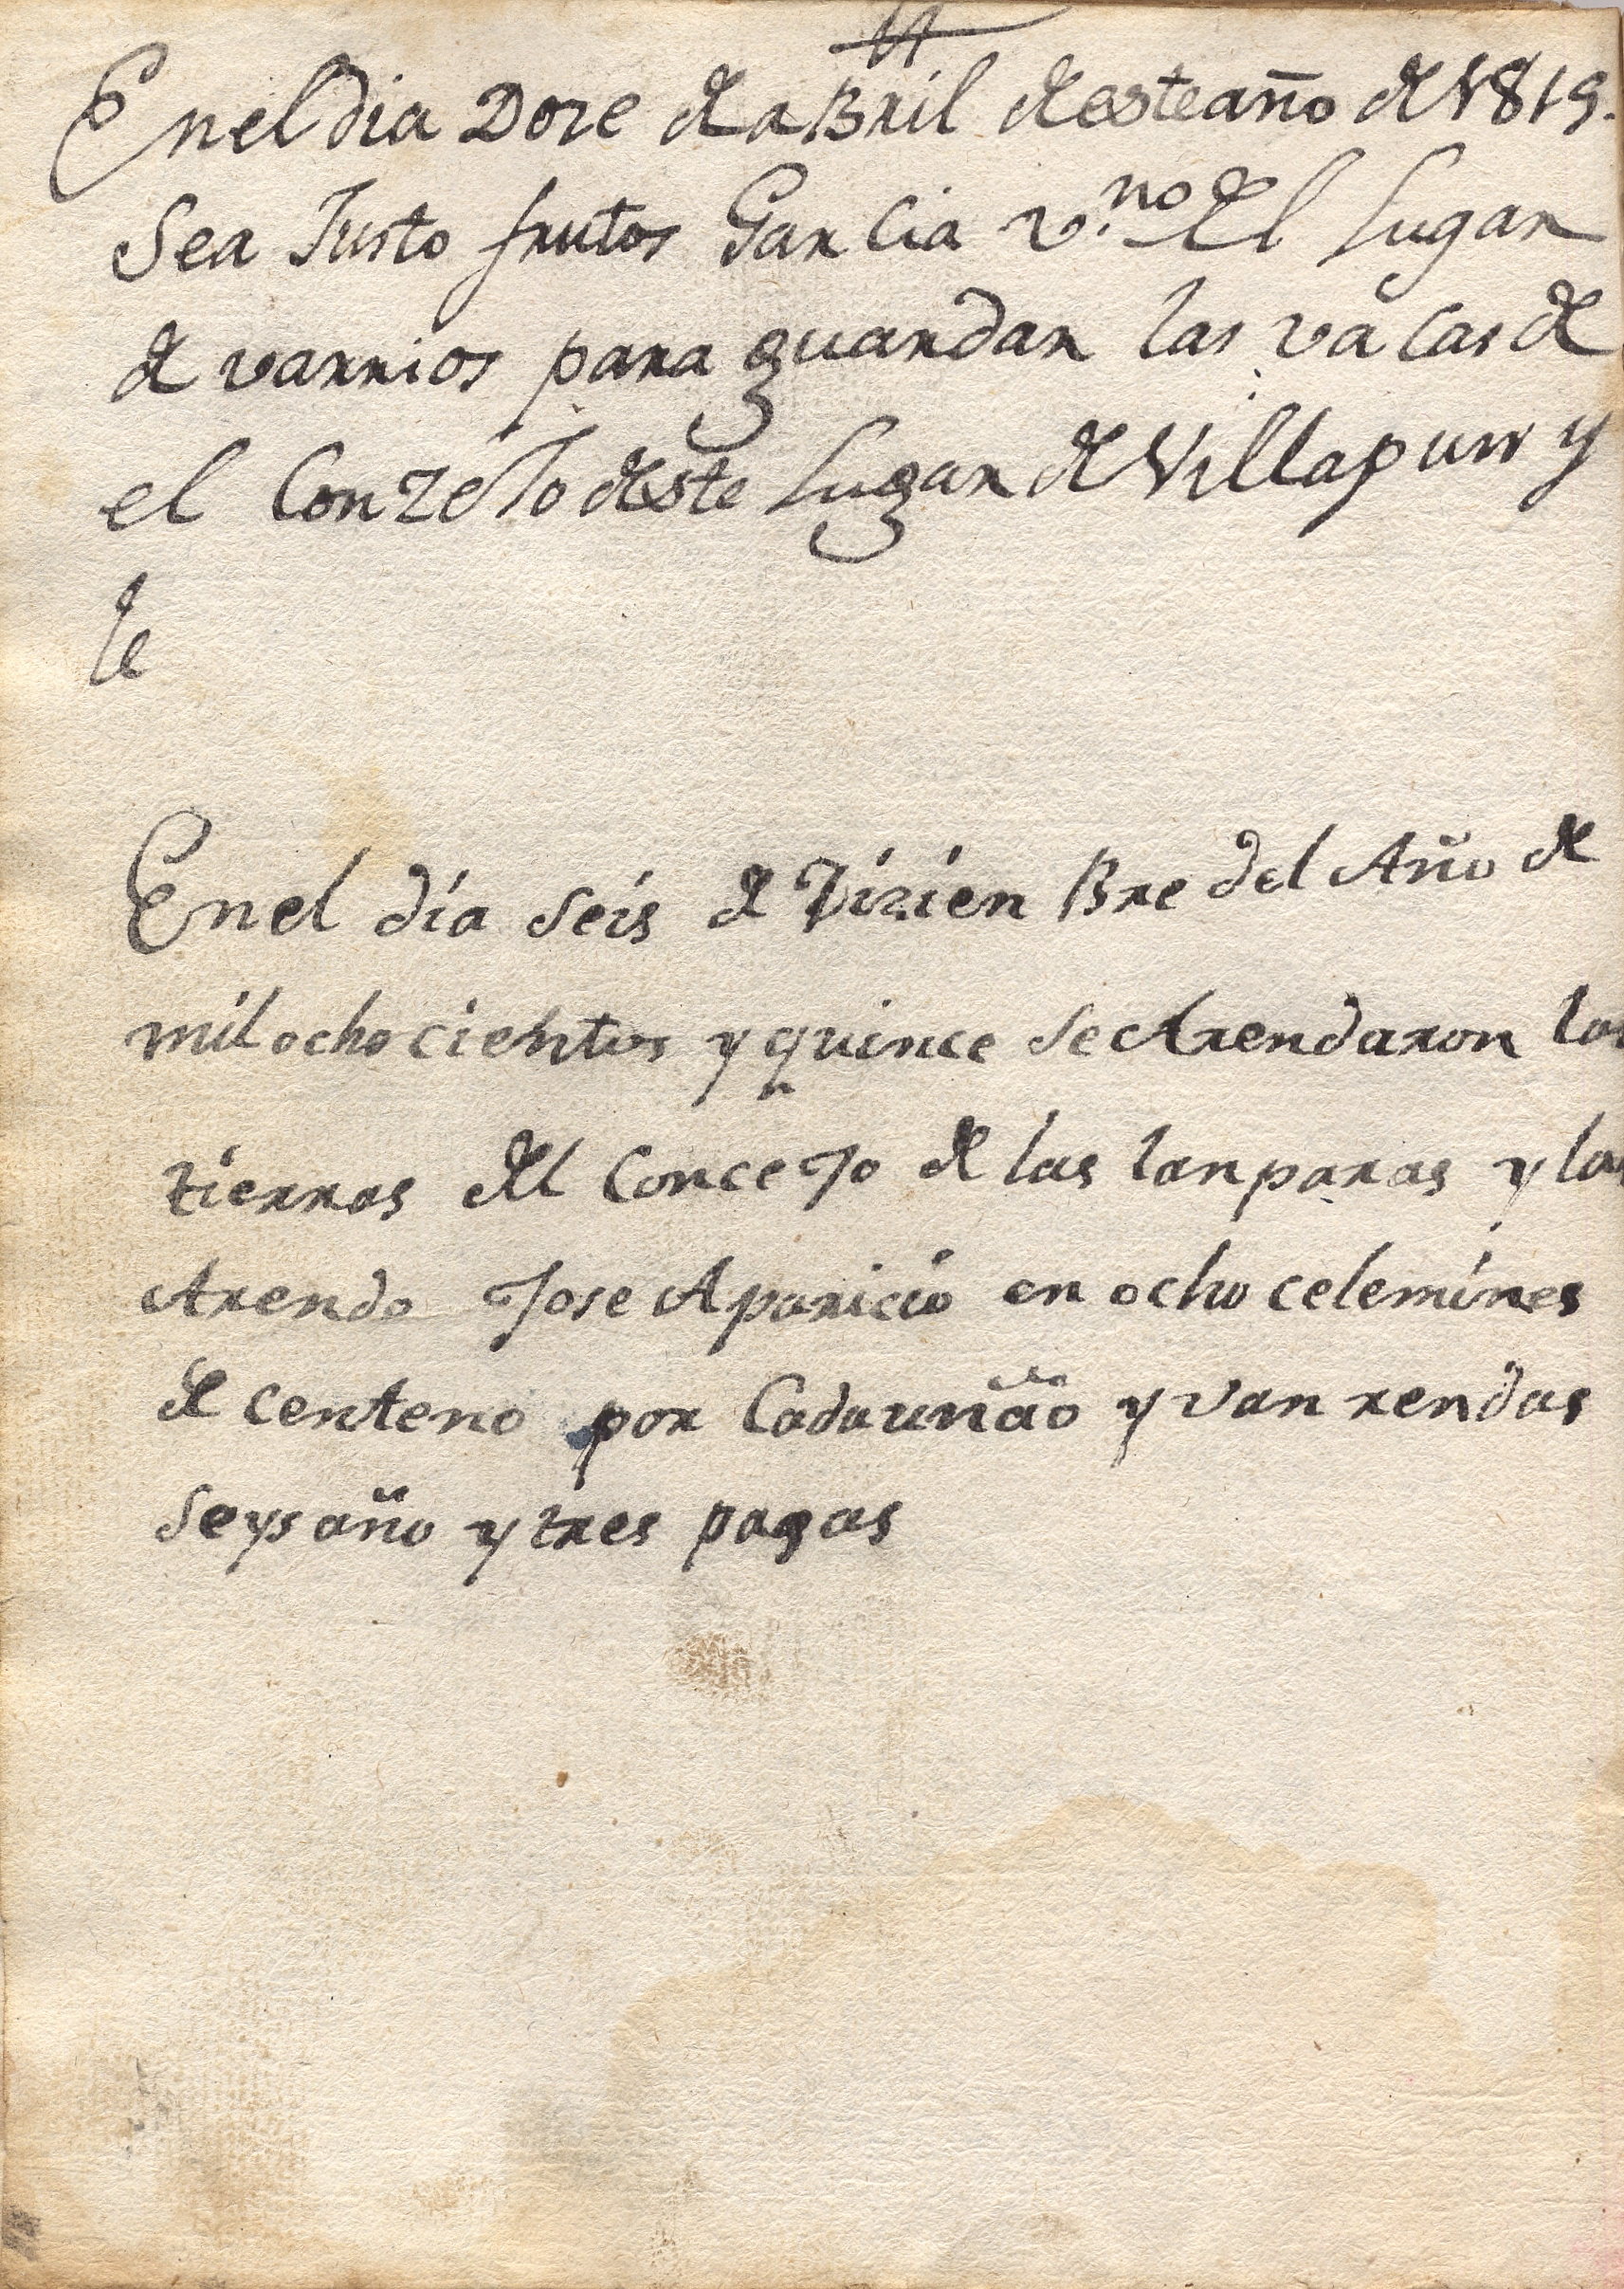 En el dia Doze de aBril de este año de 1819.
Sea Justo frutos Garcia v.no del Lugar
de varrios para guardar las vacas de
el ConzeJo deste Lugar de Villapun y
le
En el día seis de DizienBre del Año de
mil ochocientos y quince se Arendaron las
tierras del ConceJo de las lanparas y las
Arendo Jose Aparicio en ocho celemines
de centeno por Cada un año y van rendas
seys año y tres pagas